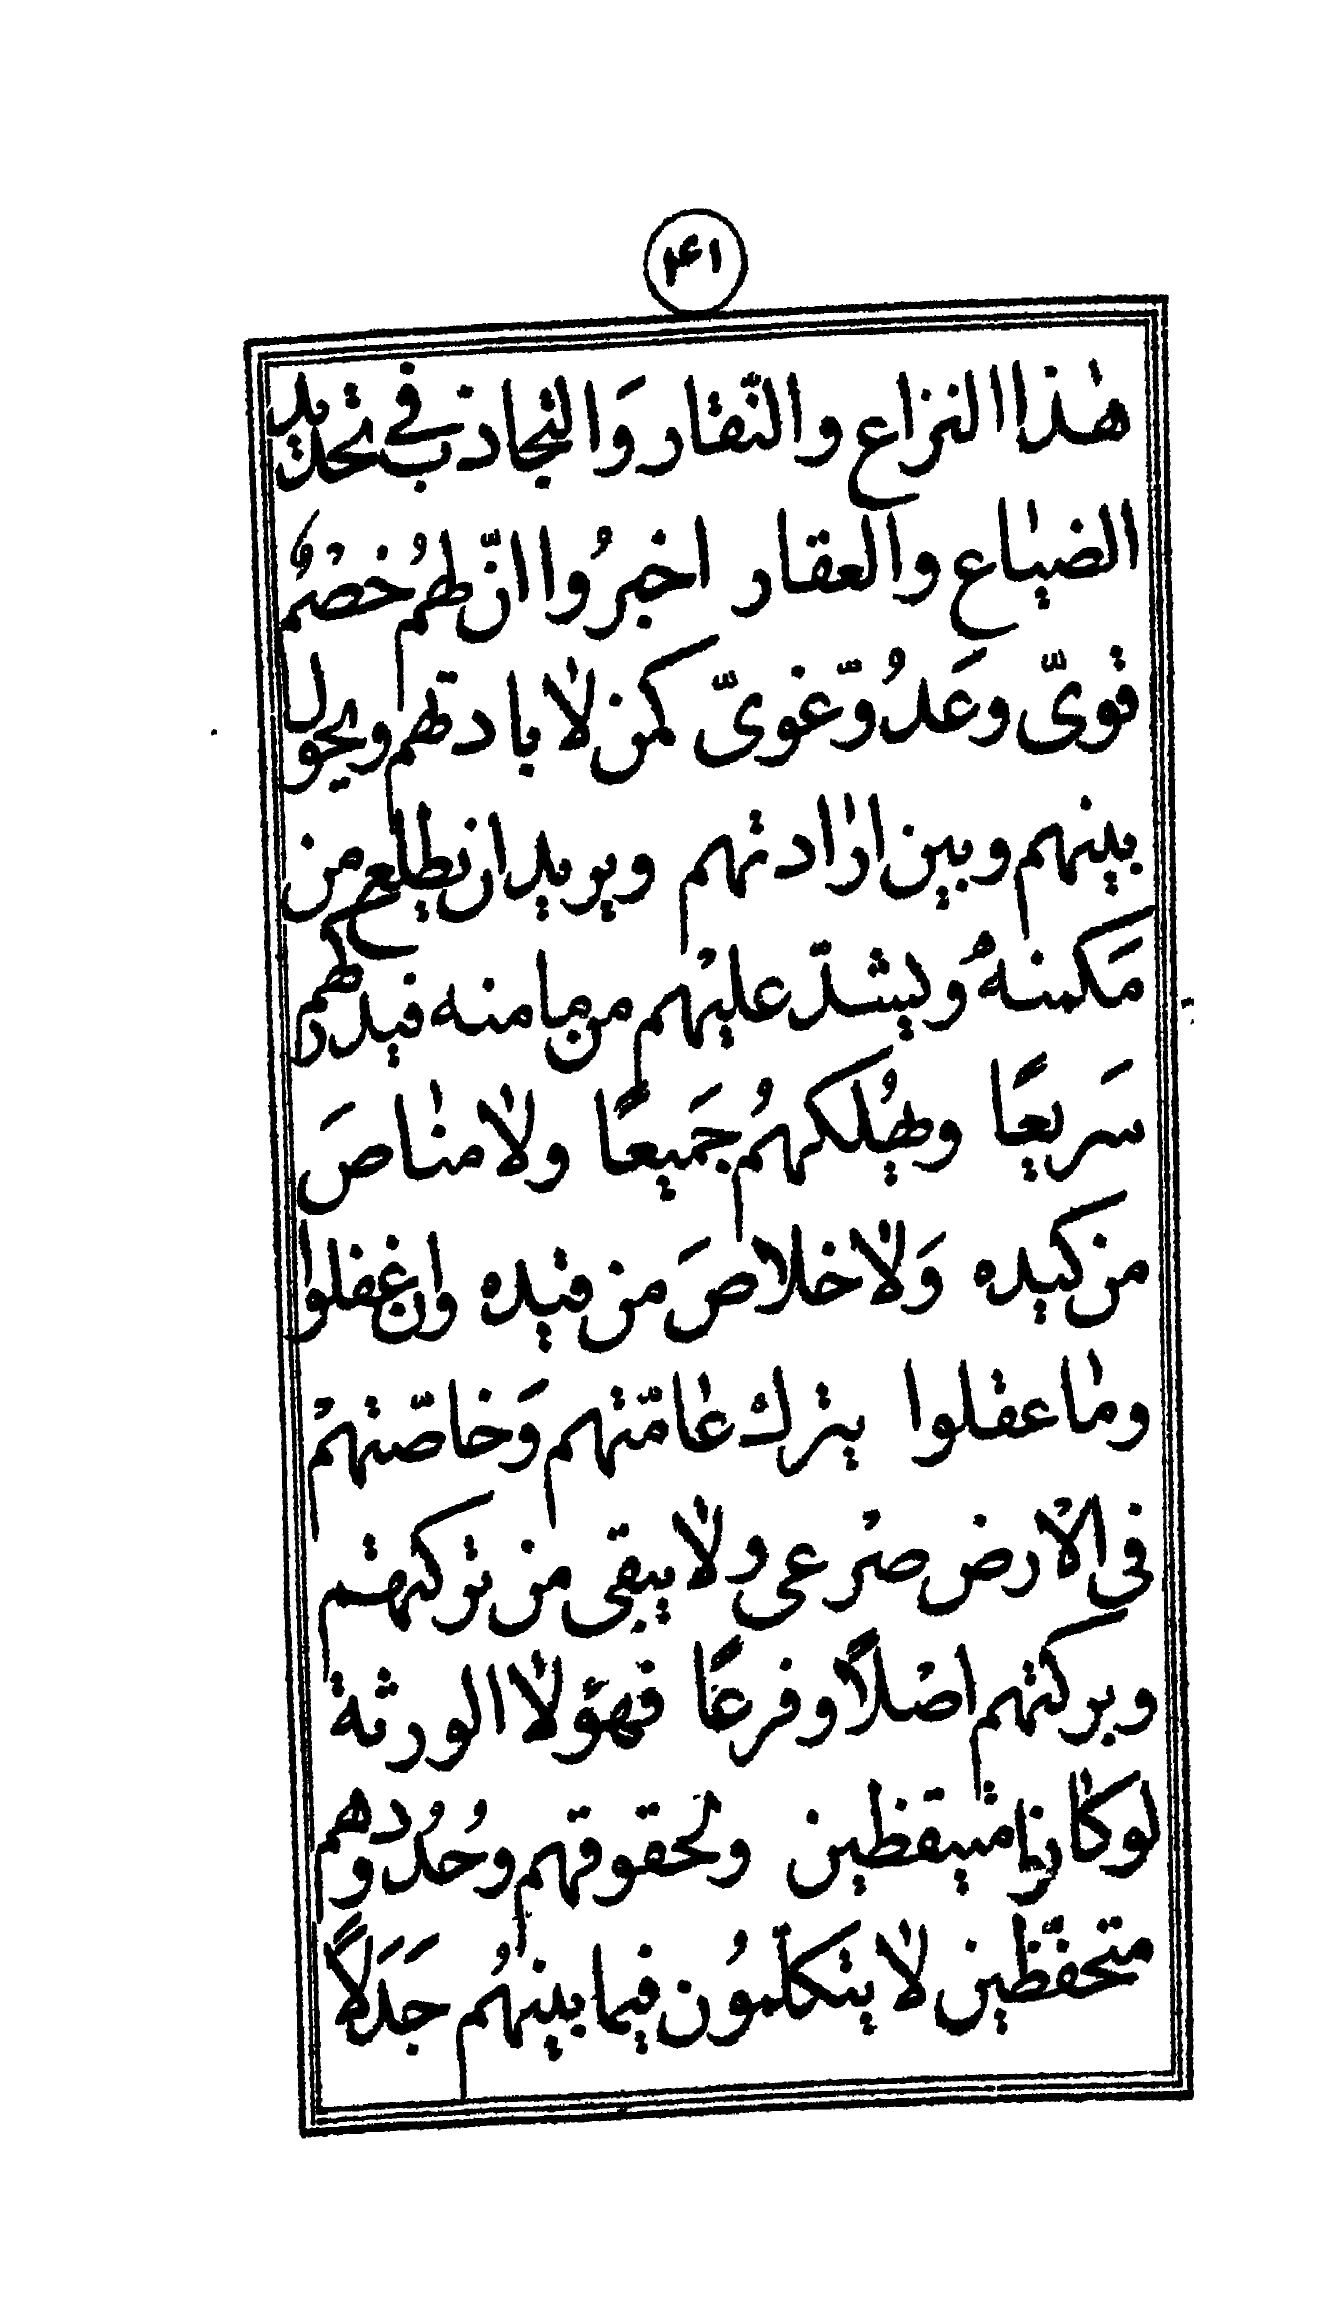 ۴۱
هٰذا النزاع والنّقار وَالتجاذب في تحديد
الضيٰاع والعقار اخبرُوا انّ لهمُ خصْمٌ
قويّ وعَدُوّ غويّ كمن لاٰبادتهم ويحول
بينهم وبين ارٰادتهم ويريد ان يطلع من
مَكمنهُ ويشدّ عليْهم من مامنه فيدركهم
سَريعًا ويهُلكهمُ جَميعًا ولاٰ منٰاصَ
من كيده وَلاٰ خلاصَ من قيده وان غفلوا
ومٰا عقلوا يترك عٰامّتهم وَخاصّتهمْ
في الاْرض صرْعى ولاٰ يبقى من تركتهم
وبركتهم اصْلاً وفرعًا فهؤلاٰ الورثة
لوكٰانوا متيقظين ولحقوقهم وحُدُودهم
متحفّظين لاٰ يتكلّموُن فيما بينهُم جَدَلاً